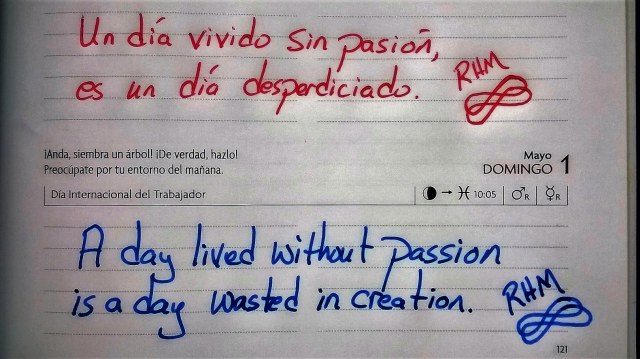 Un día vivido sin pasión,
es un día desperdiciado.
RHM
¡Anda, siembra un árbol! ¡De verdad, hazlo!
Preocúpate por tu entorno del mañana.
Mayo
DOMINGO 1
Día Internacional del Trabajador
→ ♓ 10:05 ♂R ☿R
A day lived without passion
is a day wasted in creation.
RHM
121